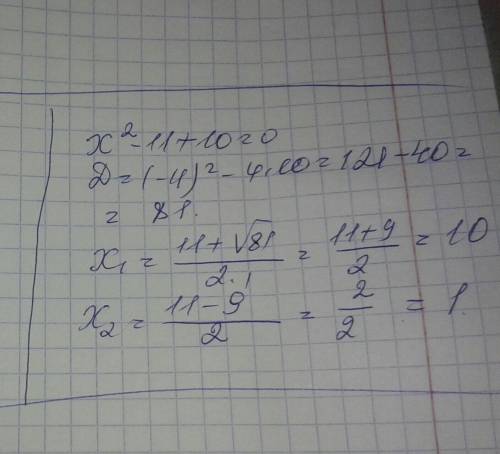 x²-11+10=0
D=(-11)²-4·10=121-40=
= 81.
x₁ = (11+√81)/(2·1) = (11+9)/2 = 10
x₂ = (11-9)/2 = 2/2 = 1.